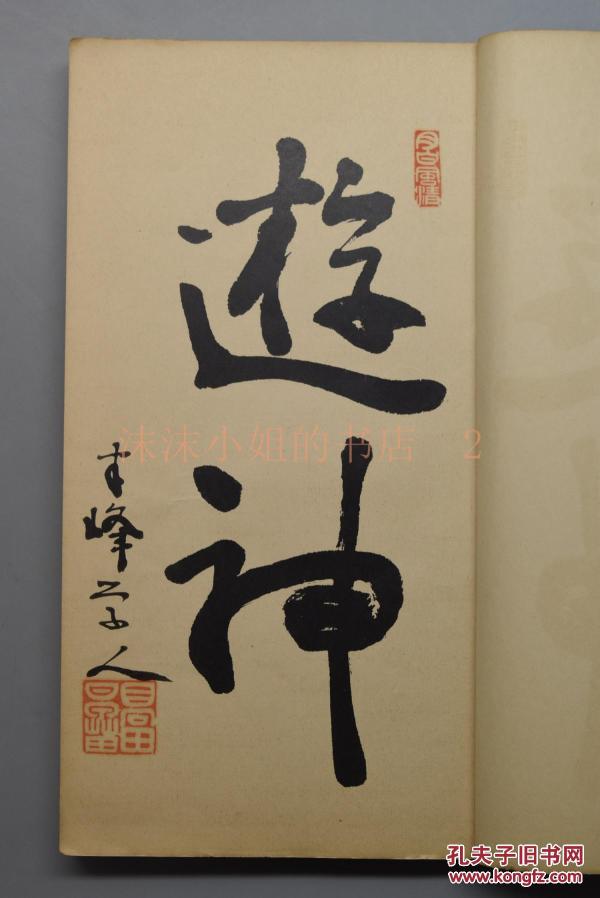 遊神
峰学人
沫沫小姐的书店 2
孔夫子旧书网
www.kongfz.com